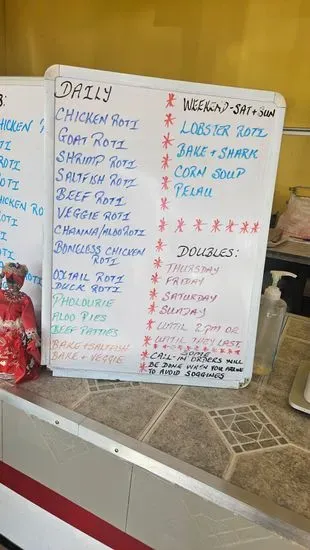 DAILY
CHICKEN ROTI
GOAT ROTI
SHRIMP ROTI
SALTFISH ROTI
BEEF ROTI
VEGGIE ROTI
CHANNA/ALOO ROTI
BONELESS CHICKEN
ROTI
OXTAIL ROTI
DUCK ROTI
PHOLOURIE
ALOO PIES
BEEF PATTIES
BAKE + SALTFISH
BAKE + VEGGIE
WEEKEND - SAT + SUN
LOBSTER ROTI
BAKE + SHARK
CORN SOUP
PELAU
DOUBLES:
THURSDAY
FRIDAY
SATURDAY
SUNDAY
UNTIL 2PM OR
UNTIL THEY LAST
SOME
CALL-IN ORDERS WILL
BE DONE WHEN YOU ARRIVE
TO AVOID SOGGINESS
CHICKEN
ROTI
ROTI
CHICKEN RO
ROTI